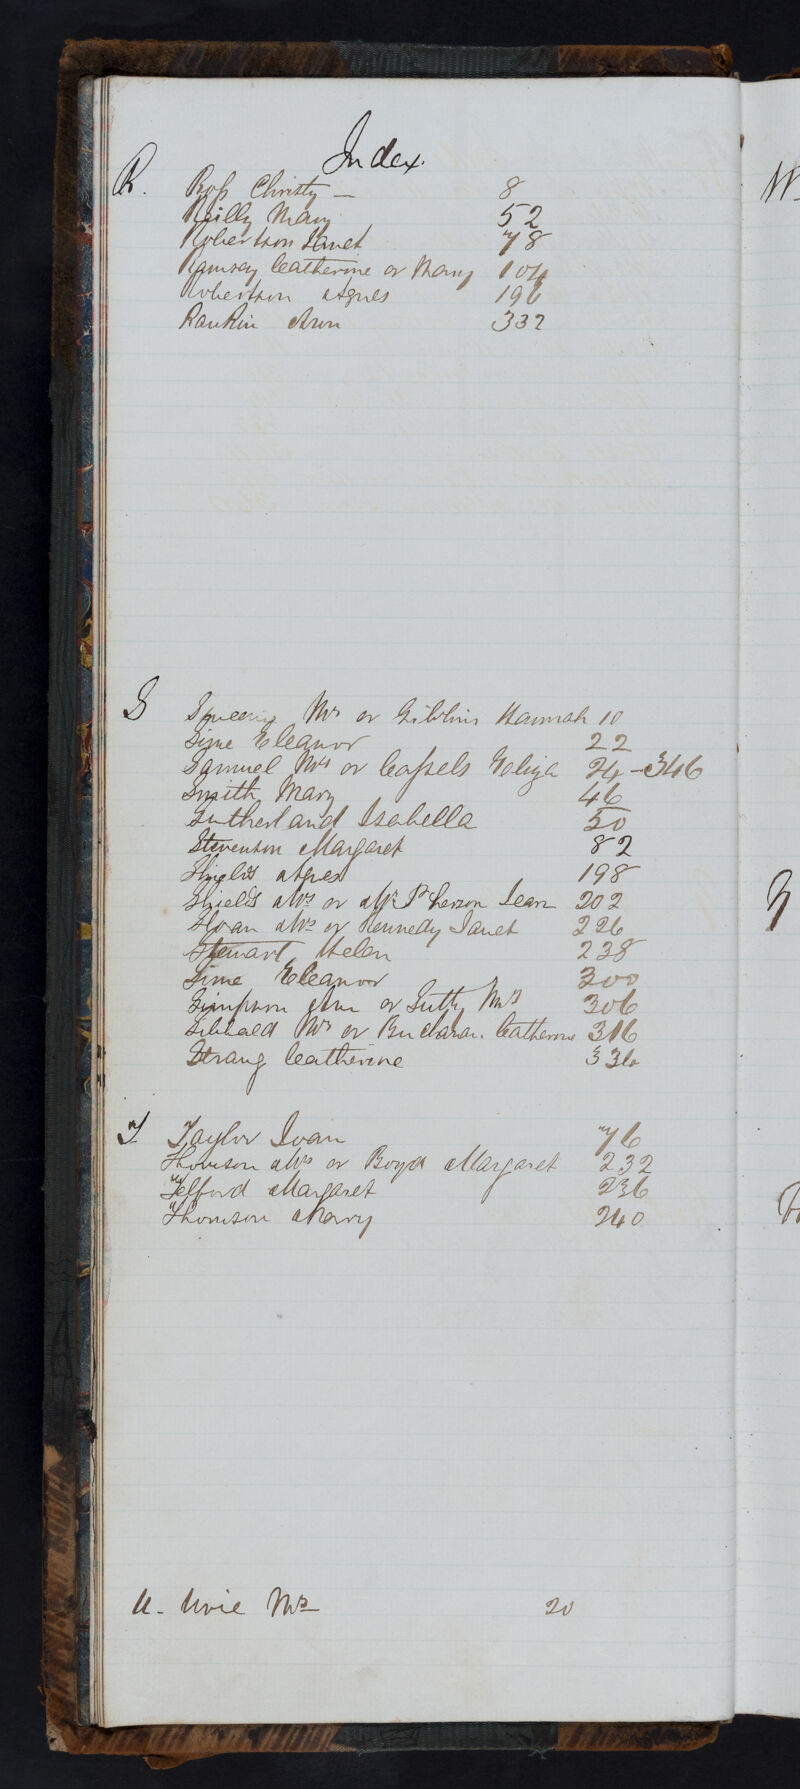 Index.
R. Ross Christy — 8
Reilly Mary 52
Robertson Janet 78
Ramsay Catherine or Mary 104
Robertson Agnes 196
Rankin Ann 332
S Mrs or Hannah 10
Sime Eleanor 22
Samuel Mrs or Cassels Eliza 24-346
Smith Mary 46
Sutherland Isabella 50
Stevenson Margaret 82
Shields Agnes 198
Shields Mrs or McPherson Jean 202
Sloan Mrs or Kennedy Janet 226
Stewart Helen 238
Sime Eleanor 300
Simpson Ann or Mrs 306
Sibbald Mrs or Buchanan Catherine 316
Strang Catherine 334
T Taylor Joan 76
Thomson Mrs or Boyd Margaret 232
Telford Margaret 236
Thomson Mary 240
U. Urie Mrs 20